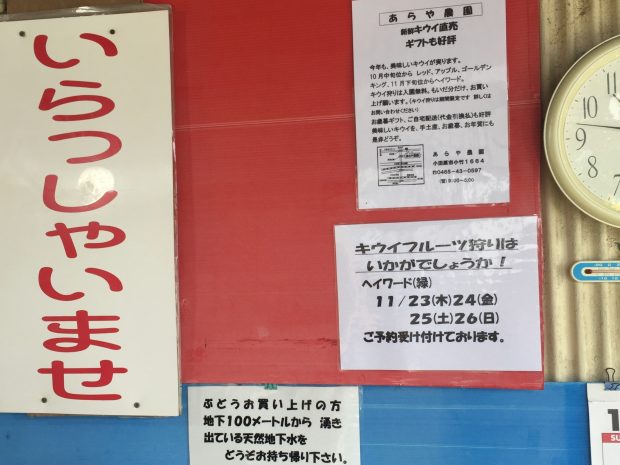 いらっしゃいませ
あらや農園
新鮮キウイ直売
ギフトも好評
今年も、美味しいキウイが実ります。
10月中旬位から レッド、アップル、ゴールデン
キング、11月下旬位からヘイワード。
キウイ狩りは入園無料。もいだ分だけ、お買い
上げ願います。（キウイ狩りは期間限定です 詳しくは
お問い合わせください）
お歳暮ギフト、ご自宅配送(代金引換払)も好評
美味しいキウイを、手土産、お歳暮、お年賀にも
是非どうぞ。
あらや農園
小田原市小竹1664
0465-43-0597
キウイフルーツ狩りは
いかがでしょうか！
ヘイワード(緑)
11/23(木)24(金)
25(土)26(日)
ご予約受け付けております。
ぶどうお買い上げの方
地下100メートルから 湧き
出ている天然地下水を
どうぞお持ち帰り下さい。
10
9
8
7
1
SUN